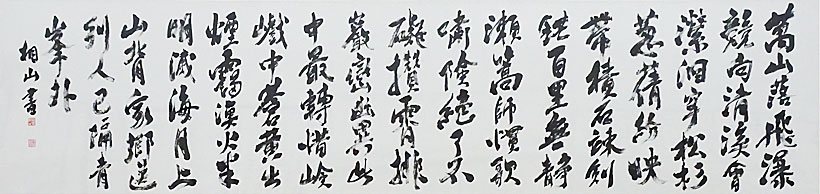 萬山落飛瀑
競向清溪會
瀠洄穿松杉
蔥蒨紛映
帶積石竦劍
鋩百里無靜
瀨篙師慣歌
嘯險絕了不
礙攢霄排
巖巒幽異此
中最轉惜嶮
巇中蒼黄出
煙靄漁火半
明滅海月上
山背家鄉送
別人已隔青
峯外
相山書